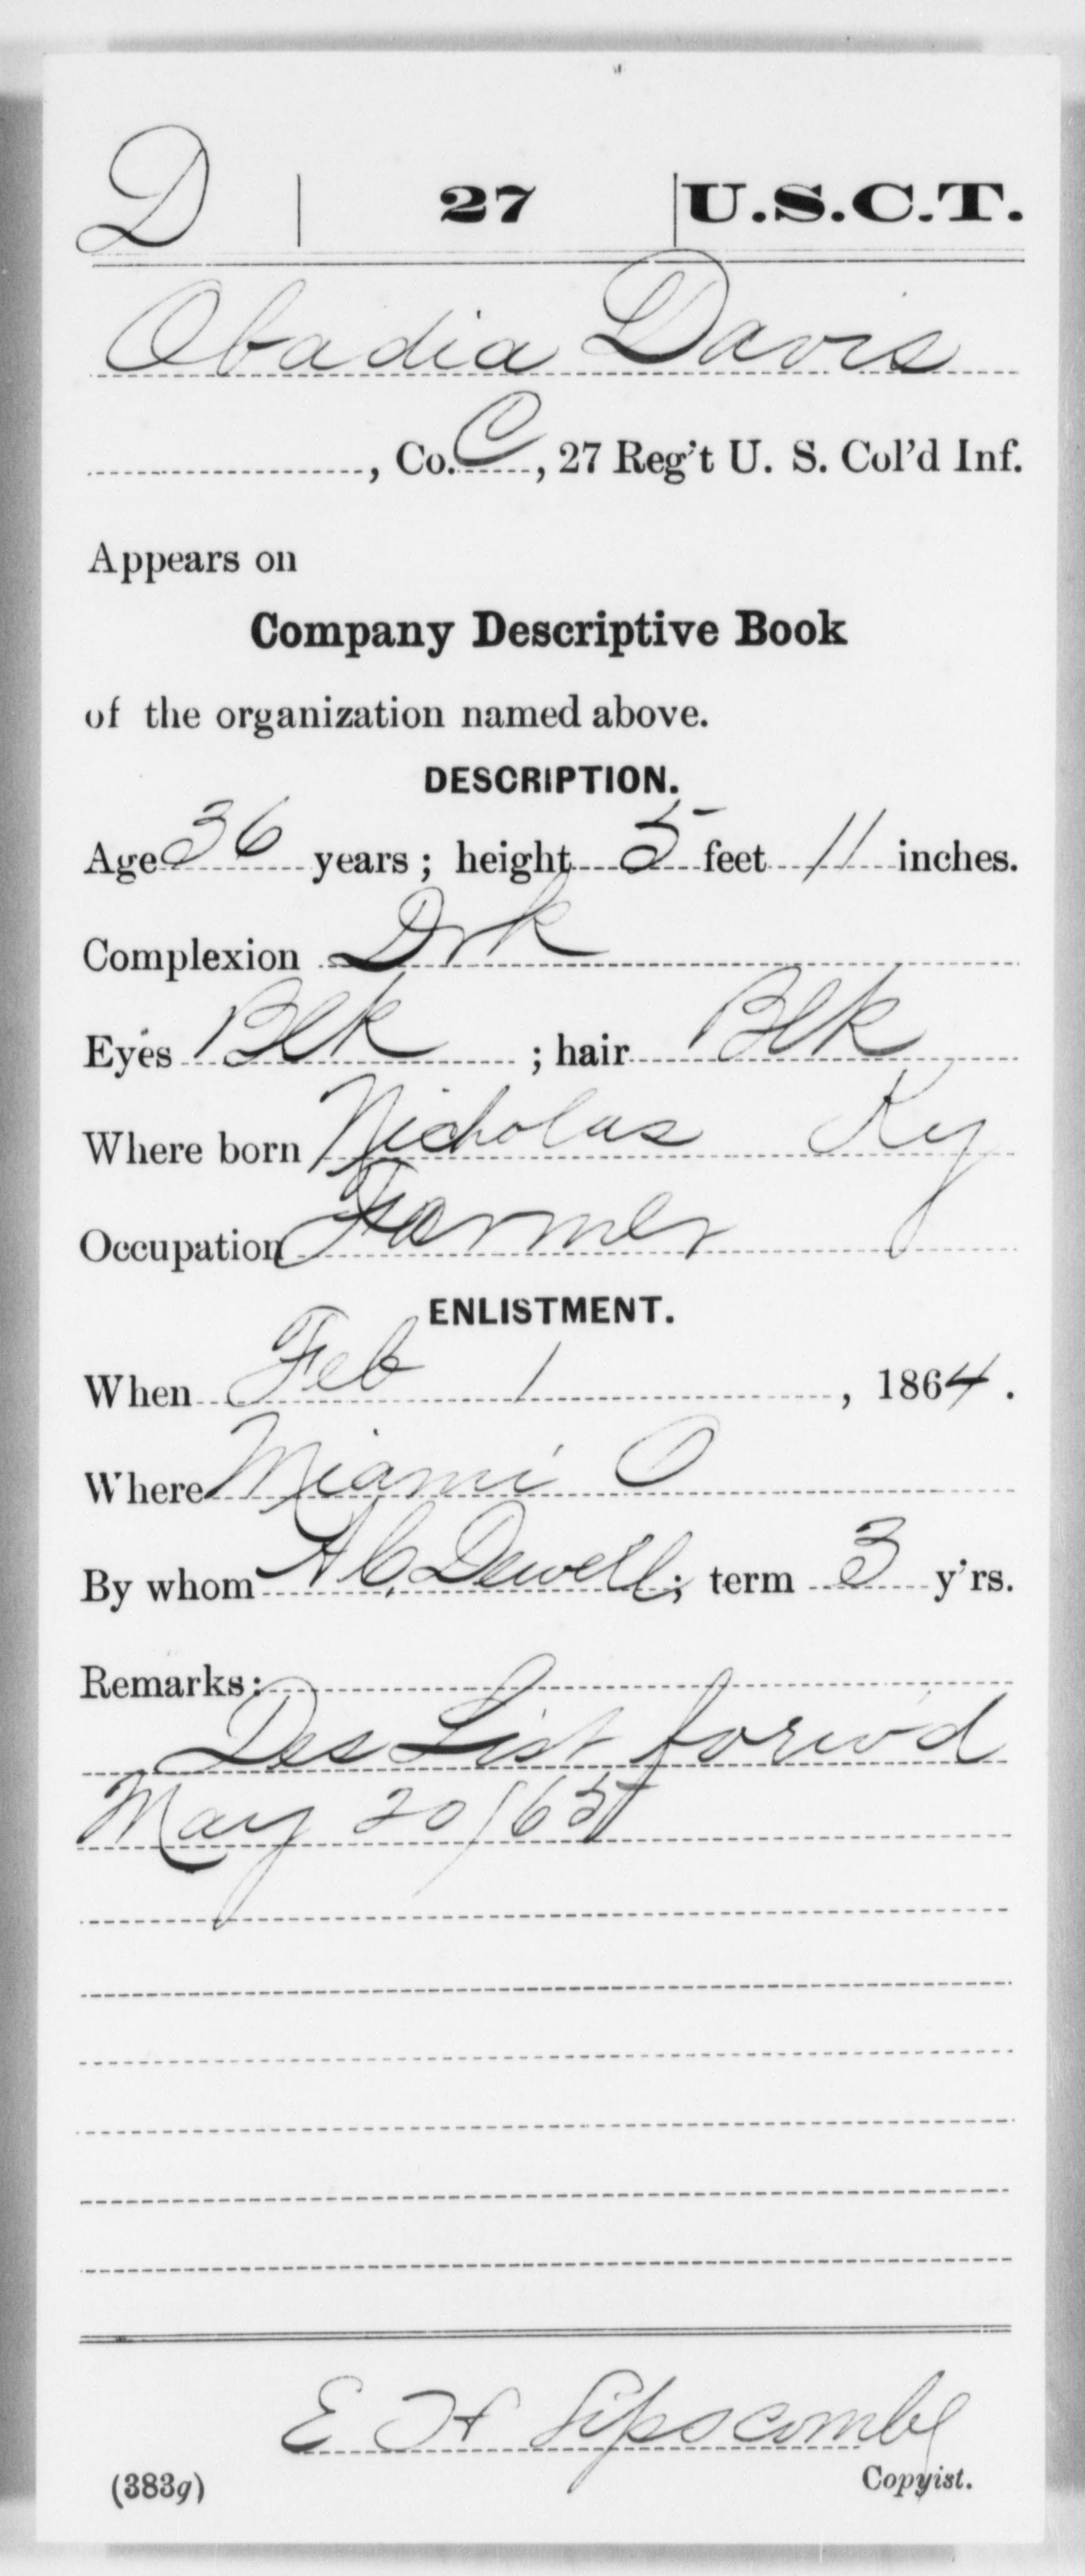 D | 27 | U.S.C.T.
Obadia Davis
, Co. C, 27 Reg't U. S. Col'd Inf.
Appears on
Company Descriptive Book
of the organization named above.
DESCRIPTION.
Age 36 years; height 5 feet 11 inches.
Complexion Drk
Eyes Blk ; hair Blk
Where born Nicholas Ky
Occupation Farmer
ENLISTMENT.
When Feb 1, 1864.
Where Miami O
By whom A C. Dewell; term 3 y'rs.
Remarks:
Des List forw'd
May 20/65
E H Lipscombe
(383g) Copyist.